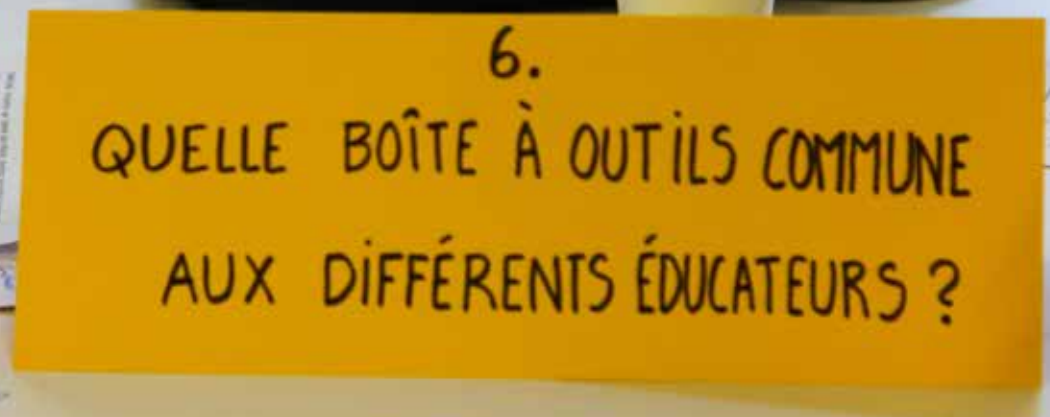 6.
QUELLE BOÎTE À OUTILS COMMUNE
AUX DIFFÉRENTS ÉDUCATEURS ?